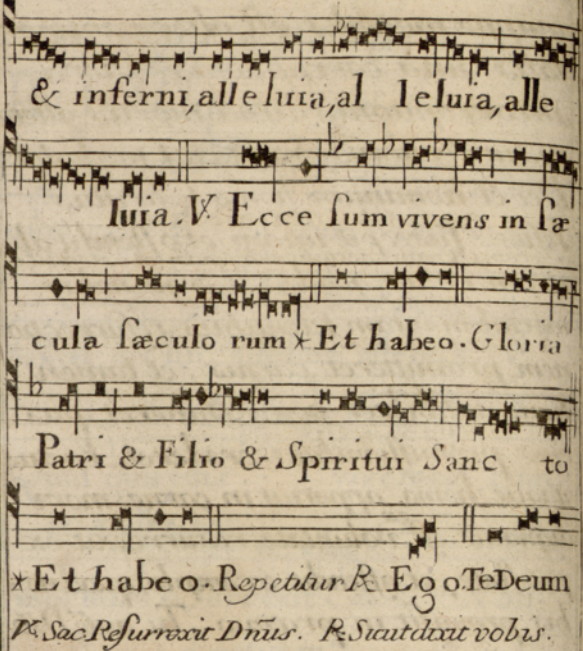 & inferni, alleluia, al leluia, alle
luia. ℣ Ecce ſum vivens in ſæ
cula ſæculo rum * Et habeo. Gloria
Patri & Filio & Spiritui Sanc to
* Et habeo. Repetitur ℟ Ego. Te Deum
℣ Sac. Reſurrexit Dn̄us. ℟ Sicut dixit vobis.